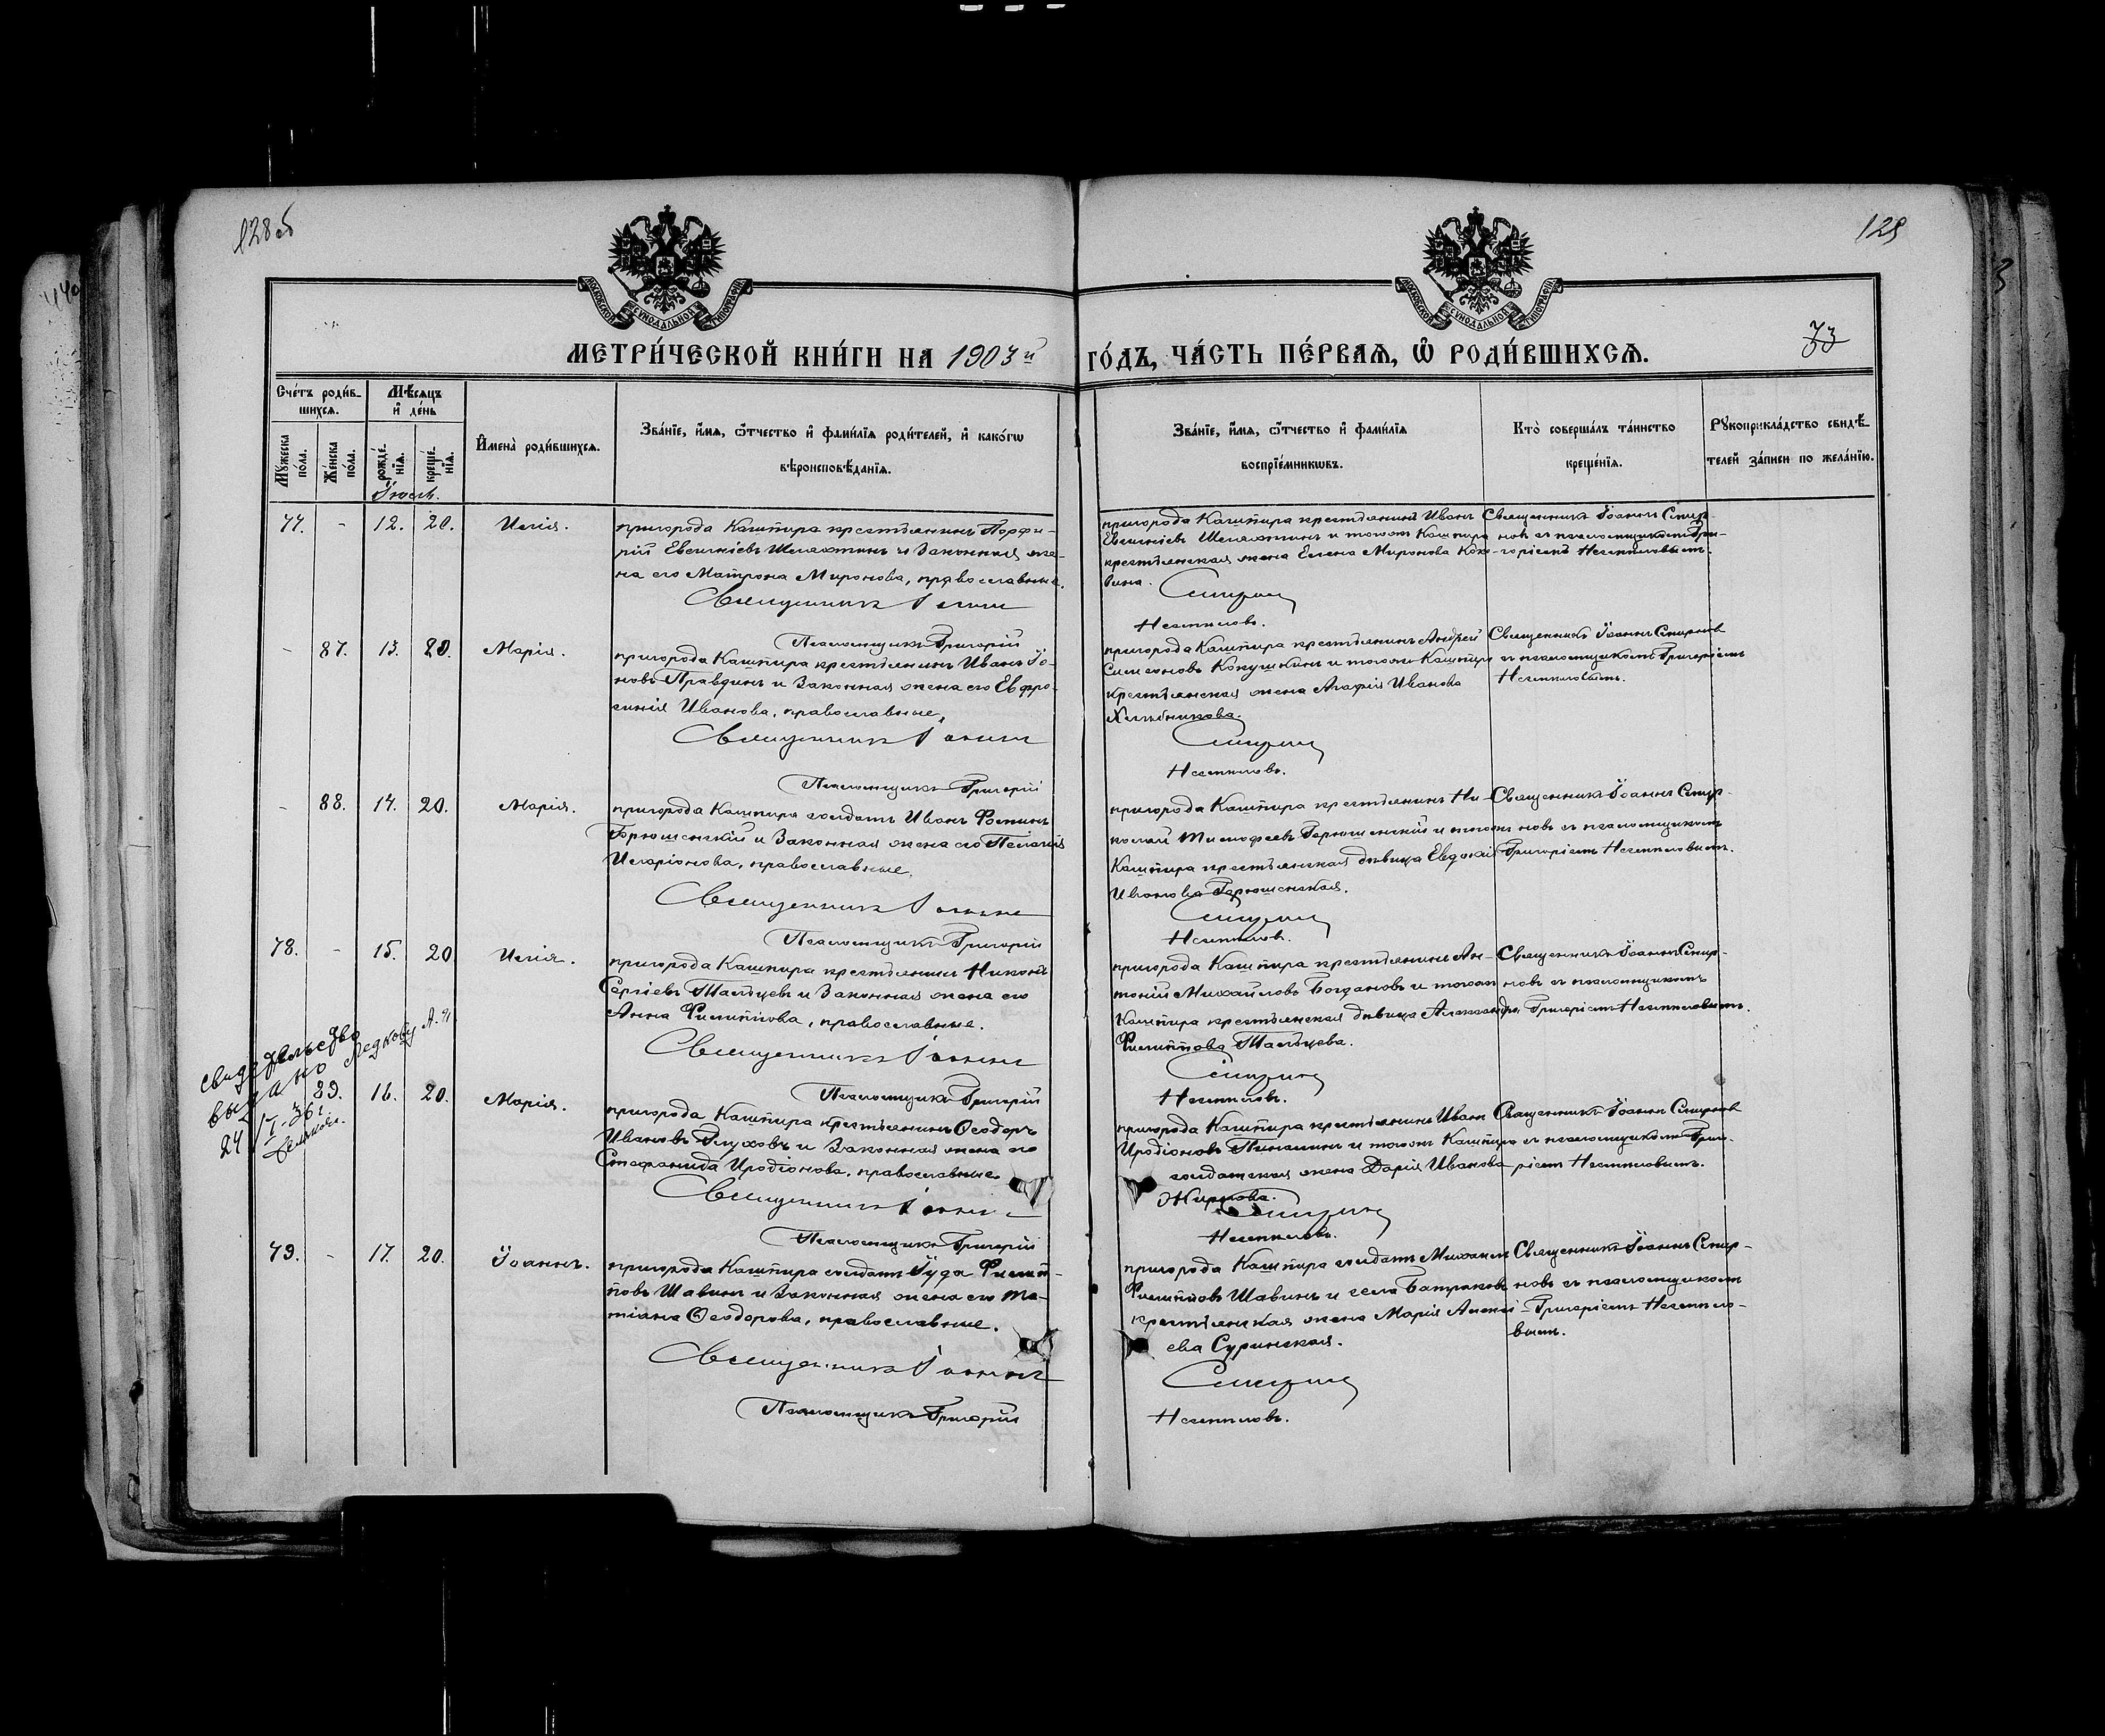 128 об
129
73
МЕТРИ́ЧЕСКОЙ КНИ́ГИ НА 1903й ГО́ДЪ, ЧА́СТЬ ПЕ́РВАѦ, Ѡ РОДИ́ВШИХСѦ.
МОСКОВСКОЙ СѴНОДАЛЬНОЙ ТИПОГРАФІИ
МОСКОВСКОЙ СѴНОДАЛЬНОЙ ТИПОГРАФІИ
Сче́тъ роди́в-
шихсѧ.
Мѣ́сѧцъ
и҆ де́нь
Мꙋ́жеска
по́ла.
Же́нска
по́ла.
рожде́-
нїѧ.
креще́-
нїѧ.
И҆мена̀ роди́вшихсѧ.
Зва́нїе, и҆́мѧ, ѻ҆́тчество и҆ фами́лїѧ роди́телей, и҆ како́гѡ
вѣроисповѣ́данїѧ.
Зва́нїе, и҆́мѧ, ѻ҆́тчество и҆ фами́лїѧ
воспрїе́мникѡвъ.
Кто̀ соверша́лъ та́инство
креще́нїѧ.
Рꙋкоприкла́дство свидѣ́-
телей за́писи по жела́нїю.
Іюль.
77. - 12. 20. Илія.
пригорода Кашпира крестьянинъ Порфи-
рій Евсигніевъ Шелахтинъ и законная же-
на его Матрона Миронова, православные.
Священникъ Іоаннъ
Псаломщикъ Григорій
пригорода Кашпира крестьянинъ Иванъ
Евсигніевъ Шелахтинъ и тогожъ Кашпира
крестьянская жена Елена Миронова
Смирновъ
Несмеловъ.
Священникъ Іоаннъ Смир-
новъ съ псаломщикомъ Гри-
горіемъ Несмеловымъ.
- 87. 13. 20. Марія.
пригорода Кашпира крестьянинъ Иванъ Іо-
новъ Правдинъ и законная жена его Евфро-
синія Иванова, православные,
Священникъ Іоаннъ
Псаломщикъ Григорій
пригорода Кашпира крестьянинъ Андрей
Симеоновъ Кокушкинъ и тогожъ Кашпира
крестьянская жена Агафія Иванова
Хлебникова.
Смирновъ
Несмеловъ.
Священникъ Іоаннъ Смирновъ
съ псаломщикомъ Григоріемъ
Несмеловымъ.
- 88. 14. 20. Марія.
пригорода Кашпира солдатъ Иванъ Фоминъ
Горюшенскій и законная жена его Пелагія
Иларіонова, православные.
Священникъ Іоаннъ
Псаломщикъ Григорій
пригорода Кашпира крестьянинъ Ни-
колай Тимофеевъ Горюшенскій и тогожъ
Кашпира крестьянская дѣвица Евдокія
Иванова Горюшенская.
Смирновъ
Несмеловъ.
Священникъ Іоаннъ Смир-
новъ съ псаломщикомъ
Григоріемъ Несмеловымъ.
78. - 15. 20 Илія.
пригорода Кашпира крестьянинъ Никонъ
Сергіевъ Тальцевъ и законная жена его
Анна Филиппова, православные.
Священникъ Іоаннъ
Псаломщикъ Григорій
пригорода Кашпира крестьянинъ Ан-
тоній Михайловъ Богдановъ и тогожъ
Кашпира крестьянская дѣвица Александра
Филиппова Тальцева.
Смирновъ
Несмеловъ.
Священникъ Іоаннъ Смир-
новъ съ псаломщикомъ
Григоріемъ Несмеловымъ.
свидетельство
выдано
24/I-36 г
89. 16. 20. Марія.
пригорода Кашпира крестьянинъ Ѳеодоръ
Ивановъ Глуховъ и законная жена его
Стефанида Иродіонова, православные.
Священникъ Іоаннъ
Псаломщикъ Григорій
пригорода Кашпира крестьянинъ Иванъ
Иродіоновъ Пиналинъ и тогожъ Кашпира
солдатская жена Дарія Иванова
Жирнова.
Смирновъ
Несмеловъ.
Священникъ Іоаннъ Смирновъ
съ псаломщикомъ Григо-
ріемъ Несмеловымъ.
79. - 17. 20. Іоаннъ.
пригорода Кашпира солдатъ Іуда Филип-
повъ Шавинъ и законная жена его Та-
тіана Ѳеодорова, православные.
Священникъ Іоаннъ
Псаломщикъ Григорій
пригорода Кашпира солдатъ Михаилъ
Филипповъ Шавинъ и села Батраковъ
крестьянская жена Марія Алексі-
ева Суринская.
Смирновъ
Несмеловъ.
Священникъ Іоаннъ Смир-
новъ съ псаломщикомъ
Григоріемъ Несмело-
вымъ.